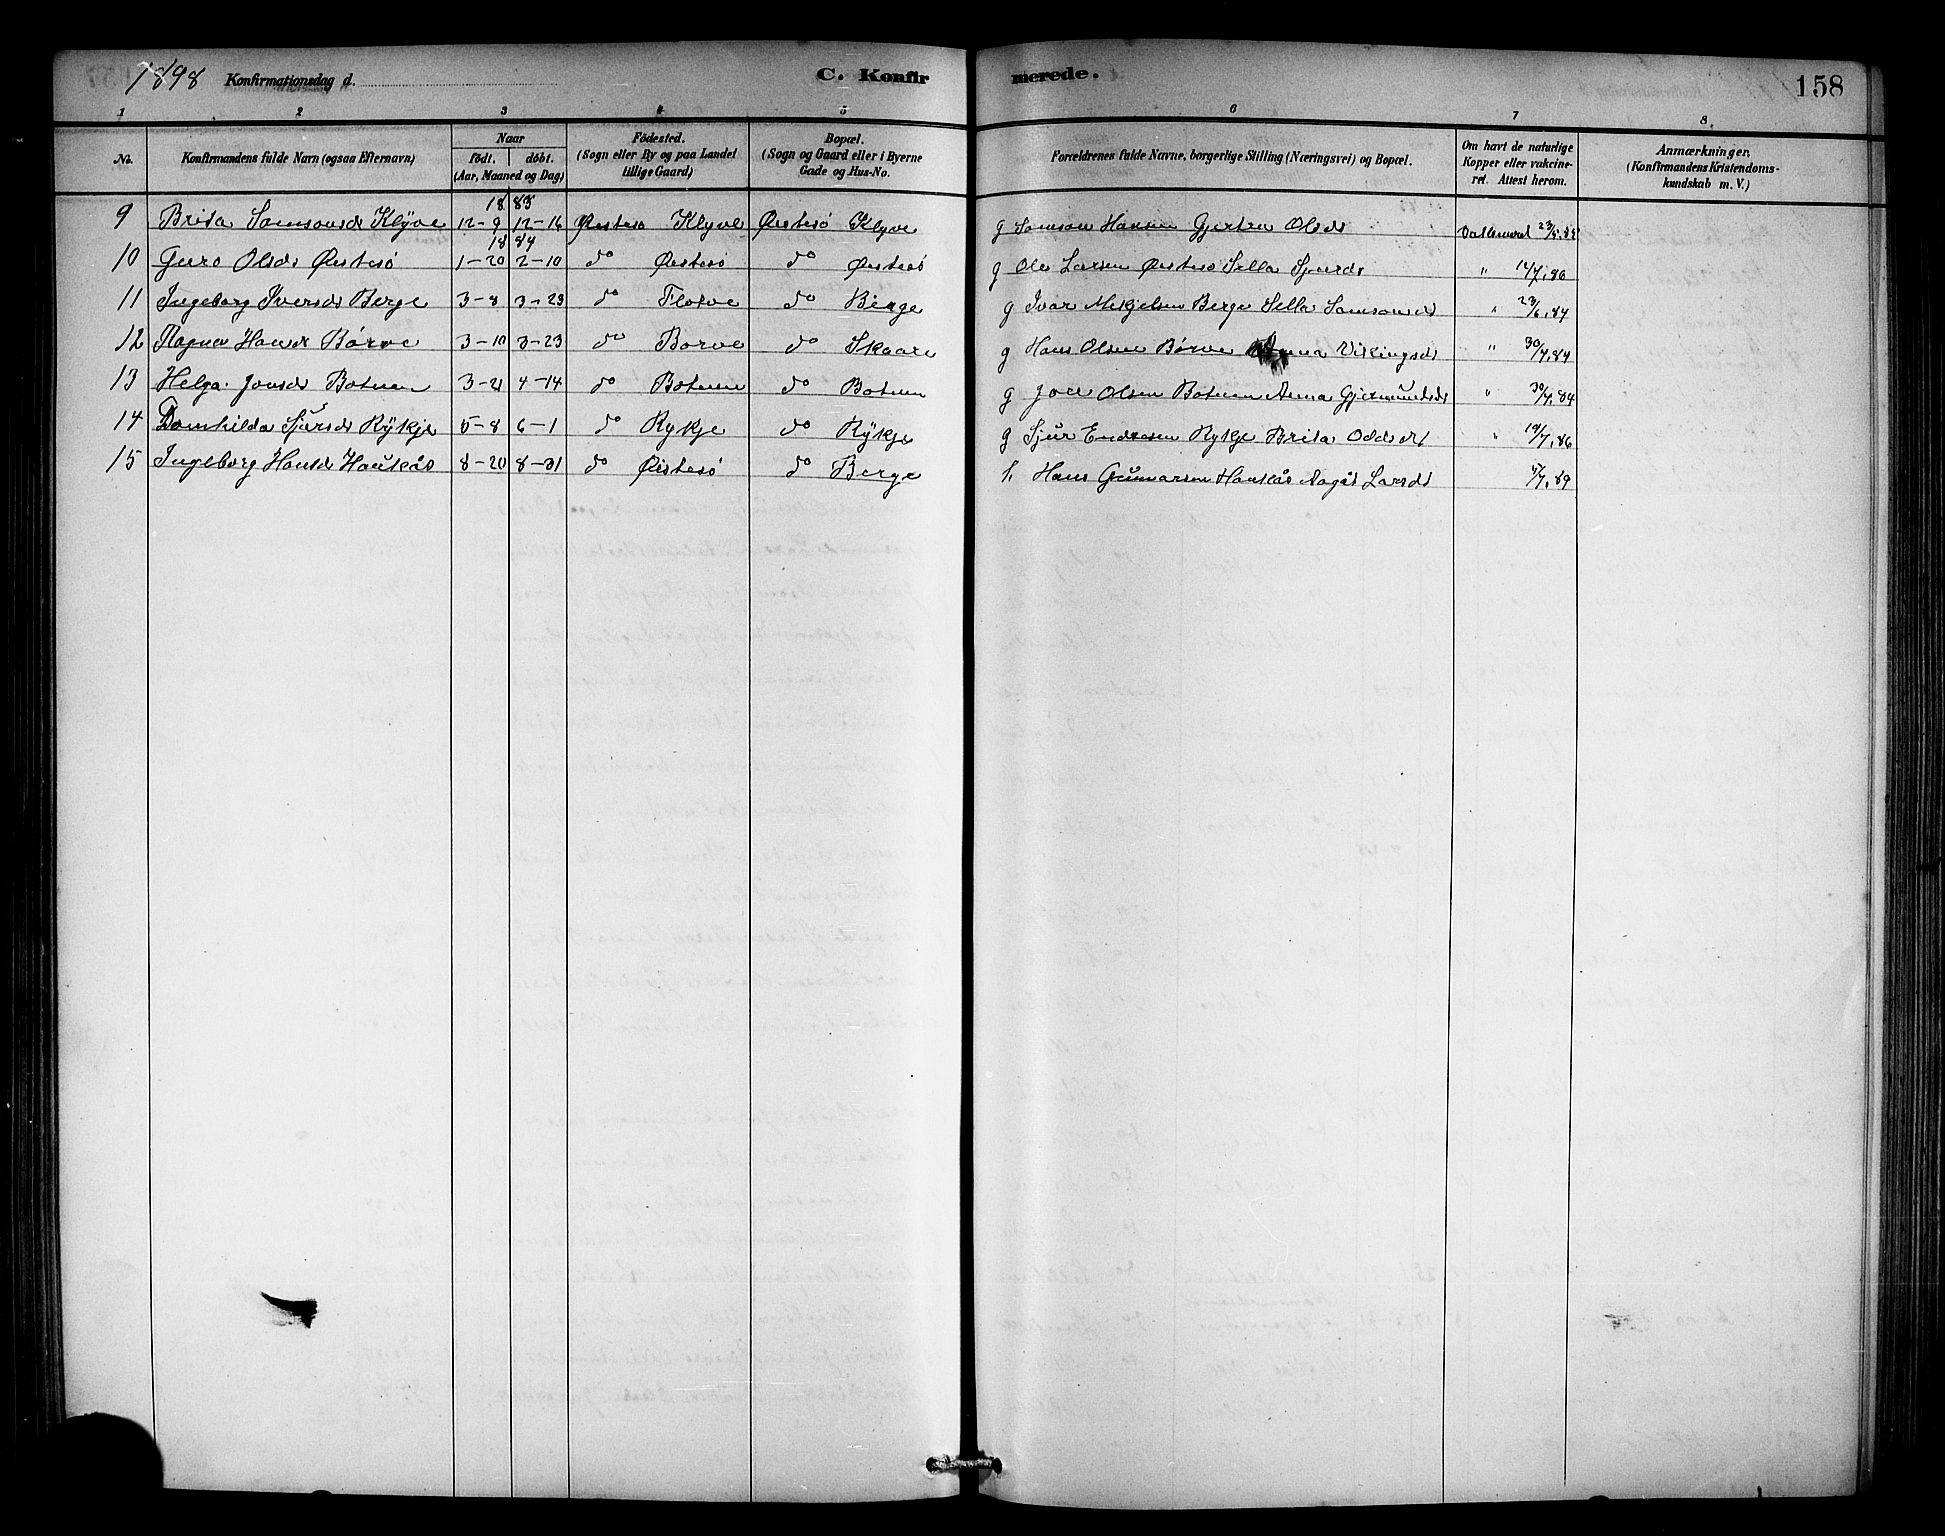 1898 Konfirmationsdag d. C. Konfirmerede. 158
1 2 3 4 5 6 7 8.
No. Konfirmandens fulde Navn (ogsaa Efternavn) Naar födt. döbt. (Aar, Maaned og Dag) Födested. (Sogn eller By og paa Landet tillige Gaard) Bopæl. (Sogn og Gaard eller i Byerne Gade og Hus-No. Forældrenes fulde Navne, borgerlige Stilling (Næringsvei) og Bopæl. Om havt de naturlige Kopper eller vakcineret. Attest herom. Anmærkninger, (Konfirmandens Kristendomskundskab m. V.)
1883
9 Brita Samsonsd Klyve 12-9 12-16 Østesø Klyve Østesø Klyve g Samson Hansen Gjertru Olsd
1884
10 Guro Olsd Østesø 1-20 2-10 do Østesø do Østesø g Ole Larsen Østesø Sella Sjursd " 14/7.86
11 Ingeborg Iversd Berge 3-8 3-23 do Flotve do Berge g Ivar Mikjelsen Berge Sella Samsonsd " 23/6.84
12 Ragna Hansd Børve 3-10 3-23 do Børve do Skaare g Hans Olsen Børve Anna Vikingsd " 30/7.84
13 Helga Jonsd Botnen 3-21 4-14 do Botnen do Botnen g Jon Olsen Botnen Anna Gjermundsd " 30/7.84
14 Domhilda Sjursd Rykje 5-8 6-1 do Rykje do Rykje g Sjur Endresen Rykje Brita Oddsd " 19/7.86
15 Ingeborg Hansd Haukås 8-20 8-31 do Østesø do Berge f. Hans Gunnarsen Haukås Aagåt Larsd